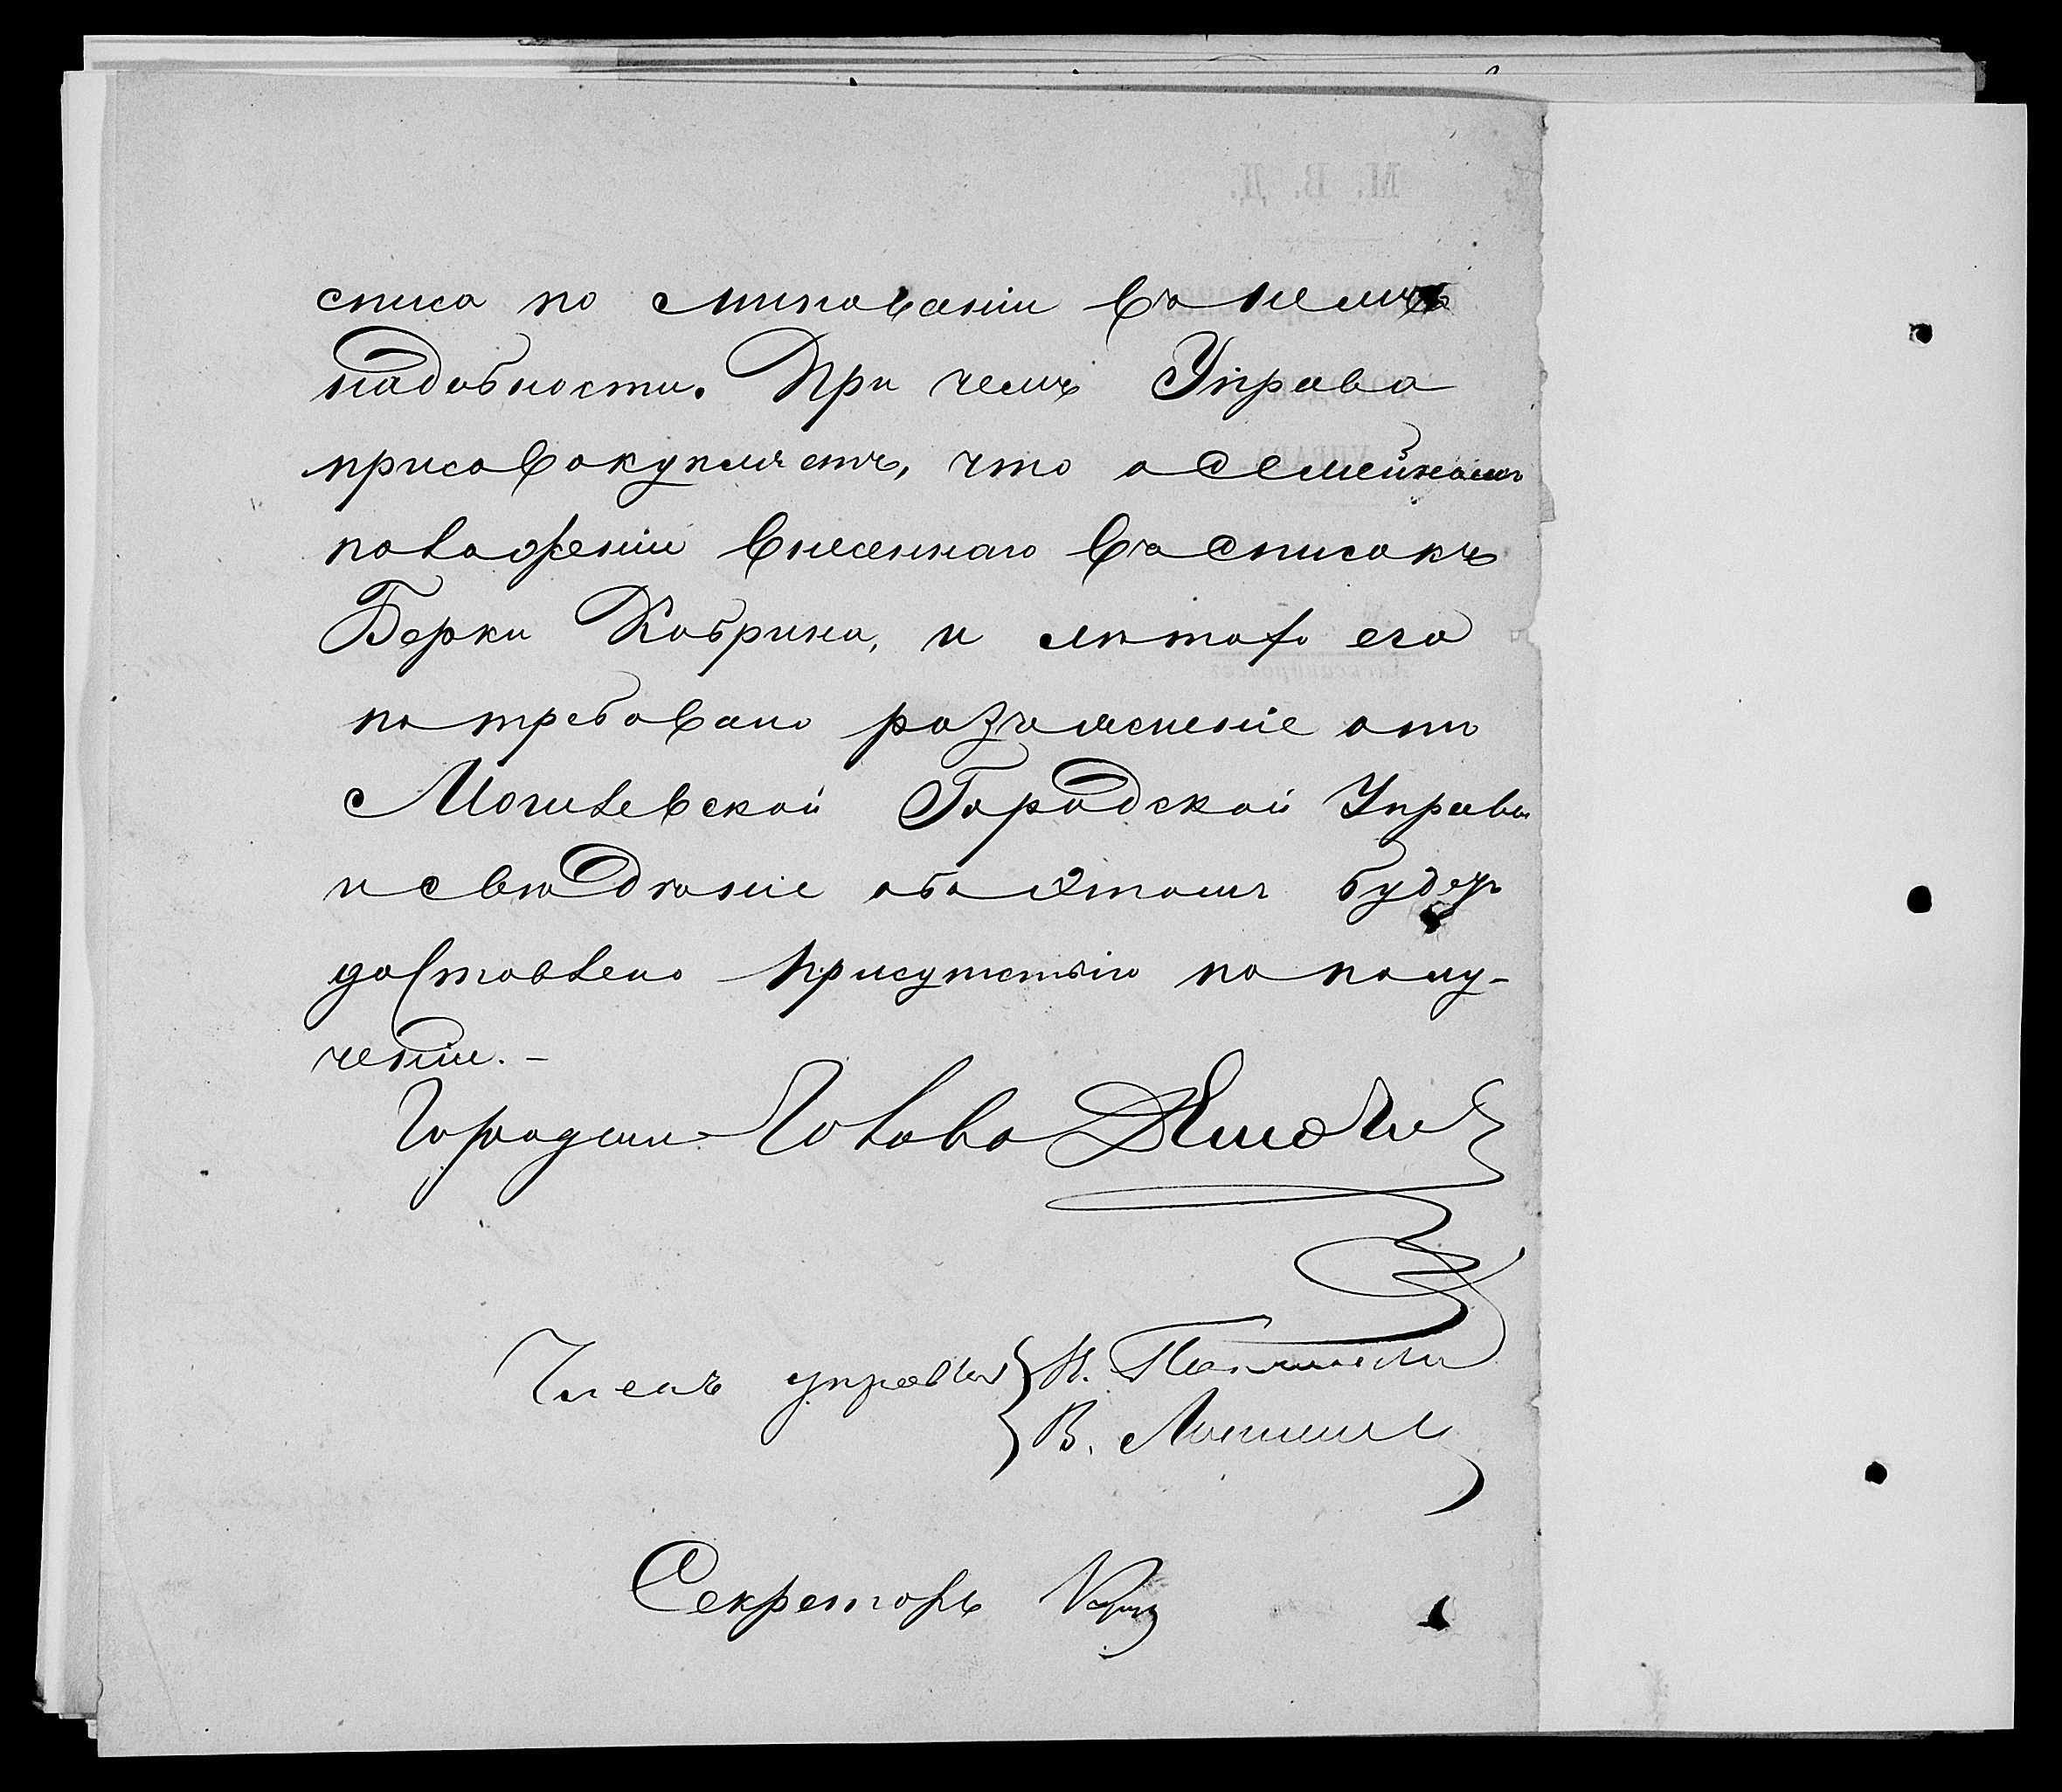 списа по миновании въ немъ
надобности. При чемъ Управа
присовокупляетъ, что о семейномъ
положеніи внесеннаго въ списокъ
Берки Кобрина, и лѣтахъ его
потребовано разъясненіе отъ
Могилевской Городской Управы
и свѣдѣніе объ этомъ будетъ
доставлено Присутствію по полу-
ченіи. –
Городской Голова
Членъ управы } Н.
} В.
Секретарь
М. В. Д.
УПРАВА